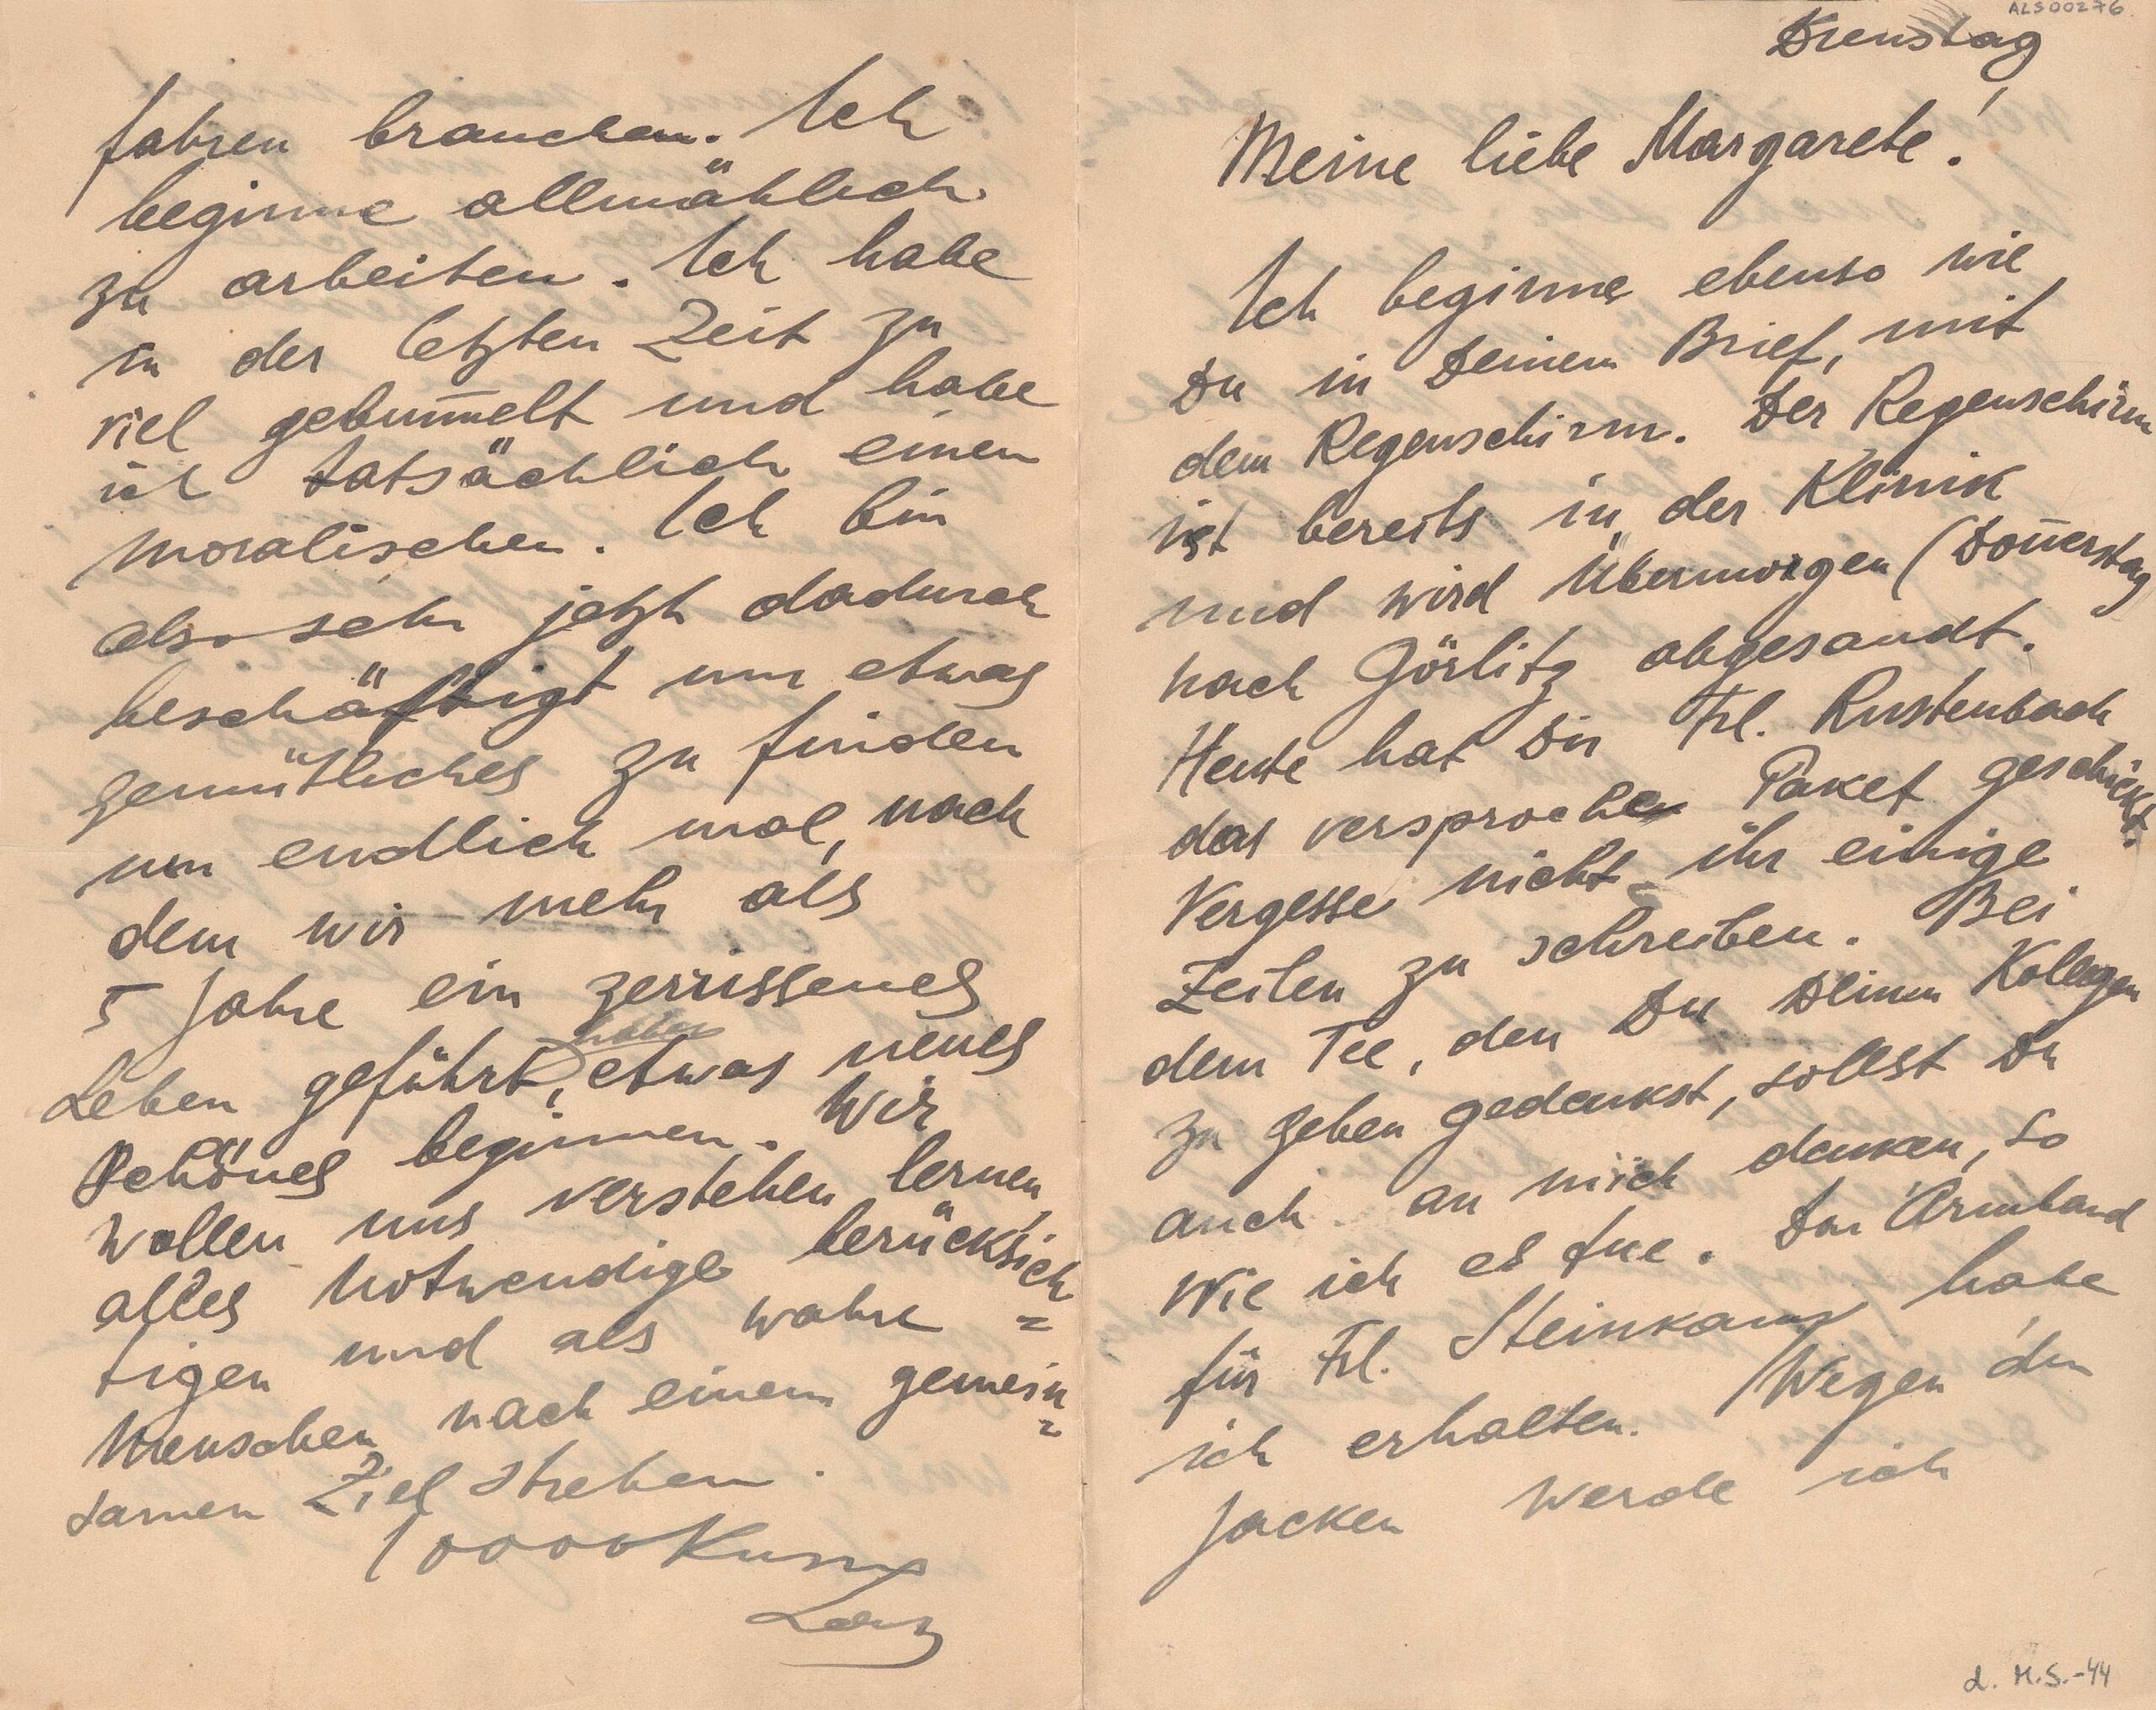 ALS00276
Dienstag
Meine liebe Margarete!
Ich beginne ebenso wie
Du in Deinem Brief, mit
dem Regenschirm. Der Regenschirm
ist bereits in der Klinik
und wird Übermorgen (Don̄erstag
nach Görlitz abgesandt.
Heute hat Dir Frl. Rustenbach
das versprochen Paket geschickt.
Vergesse nicht ihr einige
Zeilen zu schreiben. Bei
dem Tee, den Du Deinen Kollegen
zu geben gedenkst, sollst Du
auch an mich denken, so
wie ich es tue. Das Armband
für Frl. Steinkamp habe
ich erhalten. Wegen den
Jacken werde ich
L. M. S.-44
fahren brauchen. Ich
beginne allmählich
zu arbeiten. Ich habe
in der letzten Zeit zu
viel gebum̄elt und habe
ich tatsächlich einen
moralischen. Ich bin
also sehr jetzt dadurch
beschäftigt um etwas
gemütliches zu finden
um endlich mal, nach
dem wir mehr als
5 Jahre ein zerrissenes
haben
Leben geführt, etwas neues
Schönes beginnen. Wir
wollen uns verstehen lernen,
alles notwendige berücksich
=
tigen und als wahre
Menschen nach einem gemein
=
samen Ziel streben.
10000 Kuss